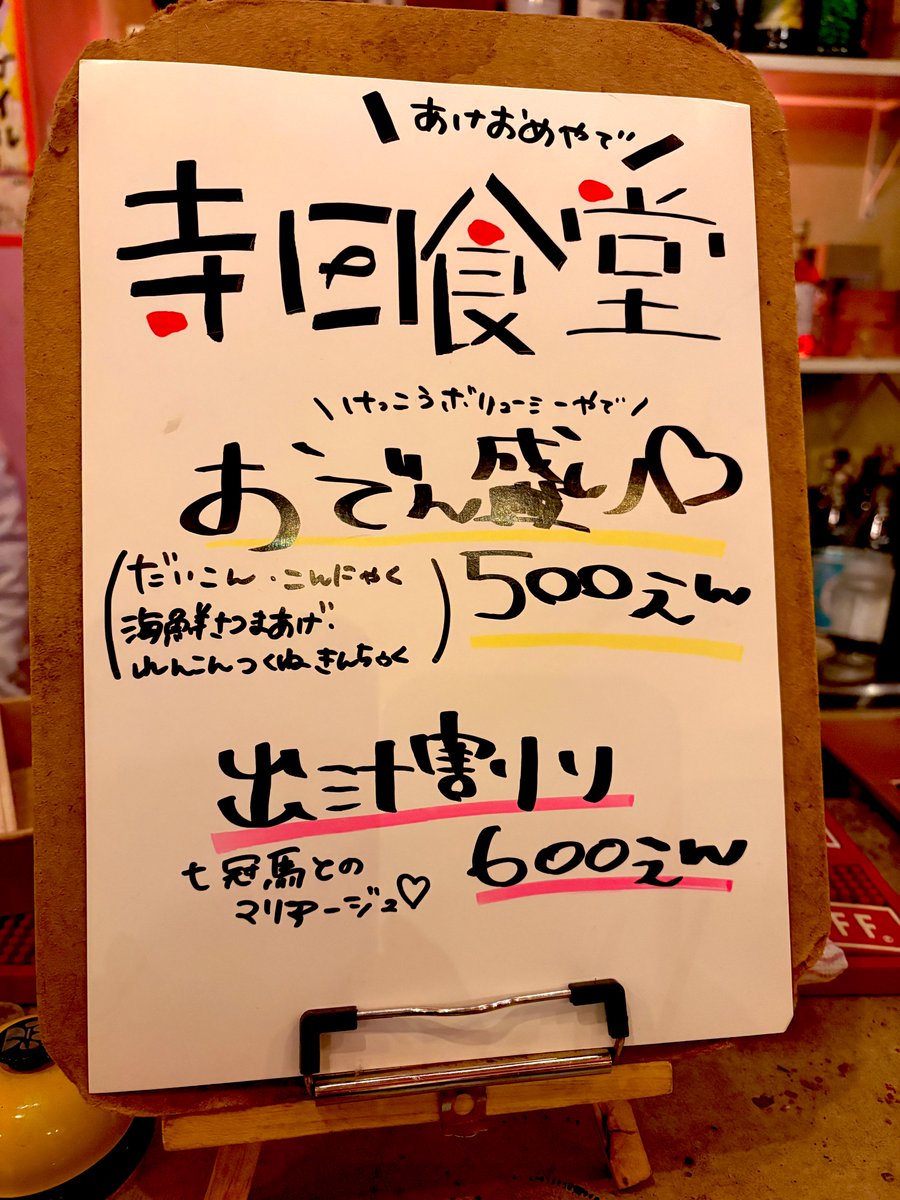 あけおめやで
寺田食堂
けっこうボリューミーやで
おでん盛り♡
(だいこん・こんにゃく
海鮮さつまあげ・
れんこんつくね・きんちゃく)
500えん
出汁割り
七冠馬との
マリアージュ♡
600えん
FF®